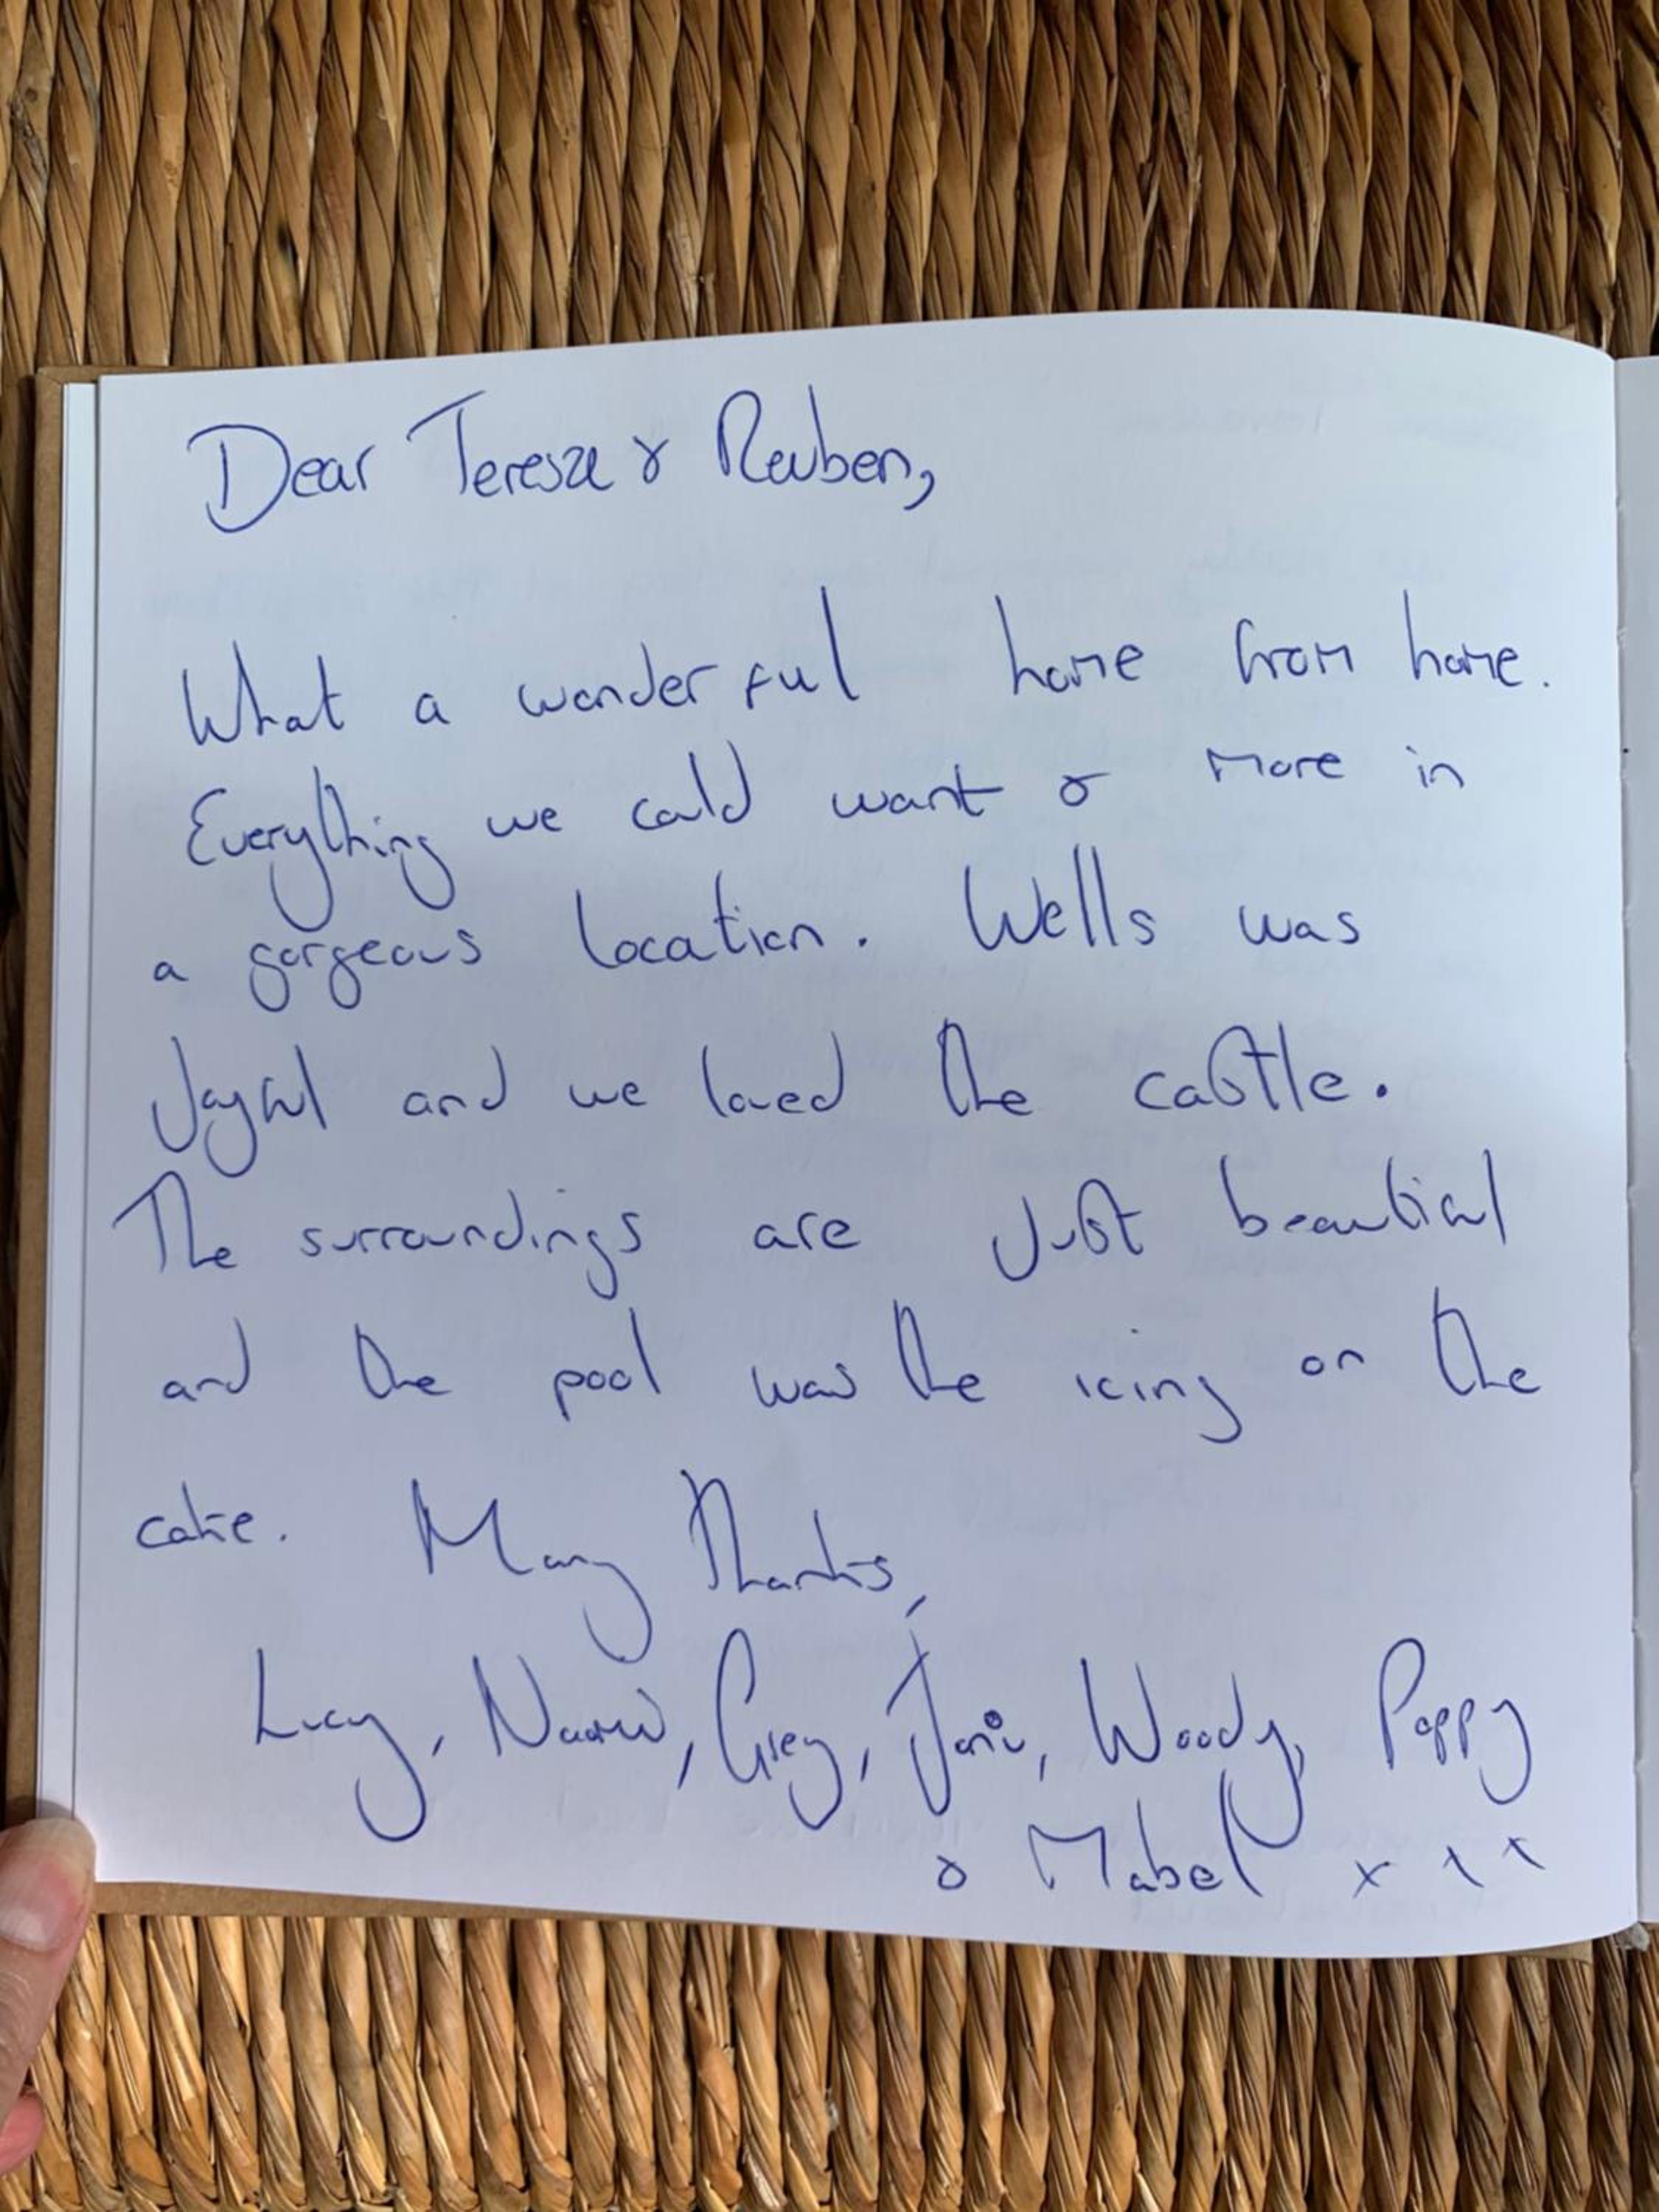 Dear Teresa & Reuben,
What a wonderful home from home.
Everything we could want & more in
a gorgeous location. Wells was
Joyful and we loved the castle.
The surroundings are just beautiful
and the pool was the icing on the
cake. Many Thanks,
Lucy, Naomi, Greg, Woody, Poppy
& Mabel x x x